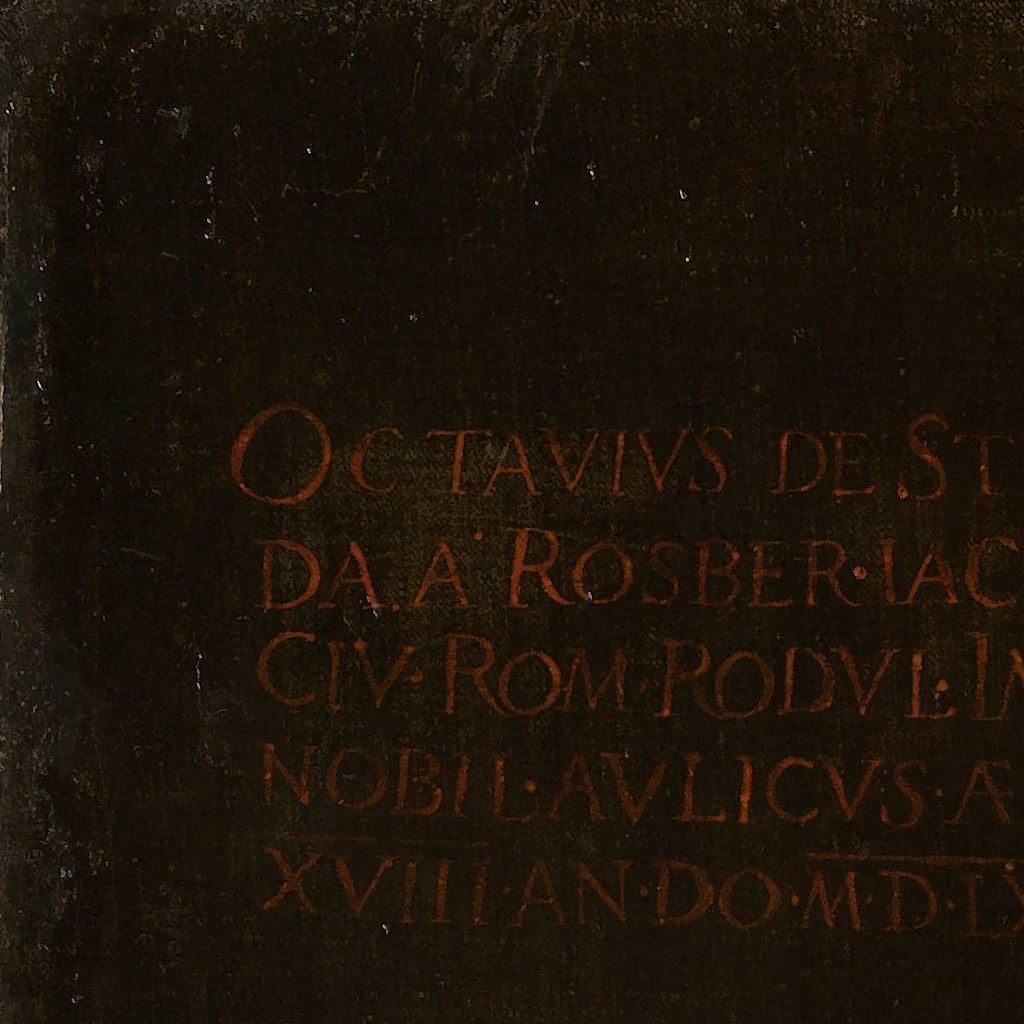 OCTAVIVS DE ST
DA. A ROSBER·IAC
CIV·ROM·RODVL·IM
NOBIL·AVLICVS·Æ
XVIII·AN·DO·M·D·LX